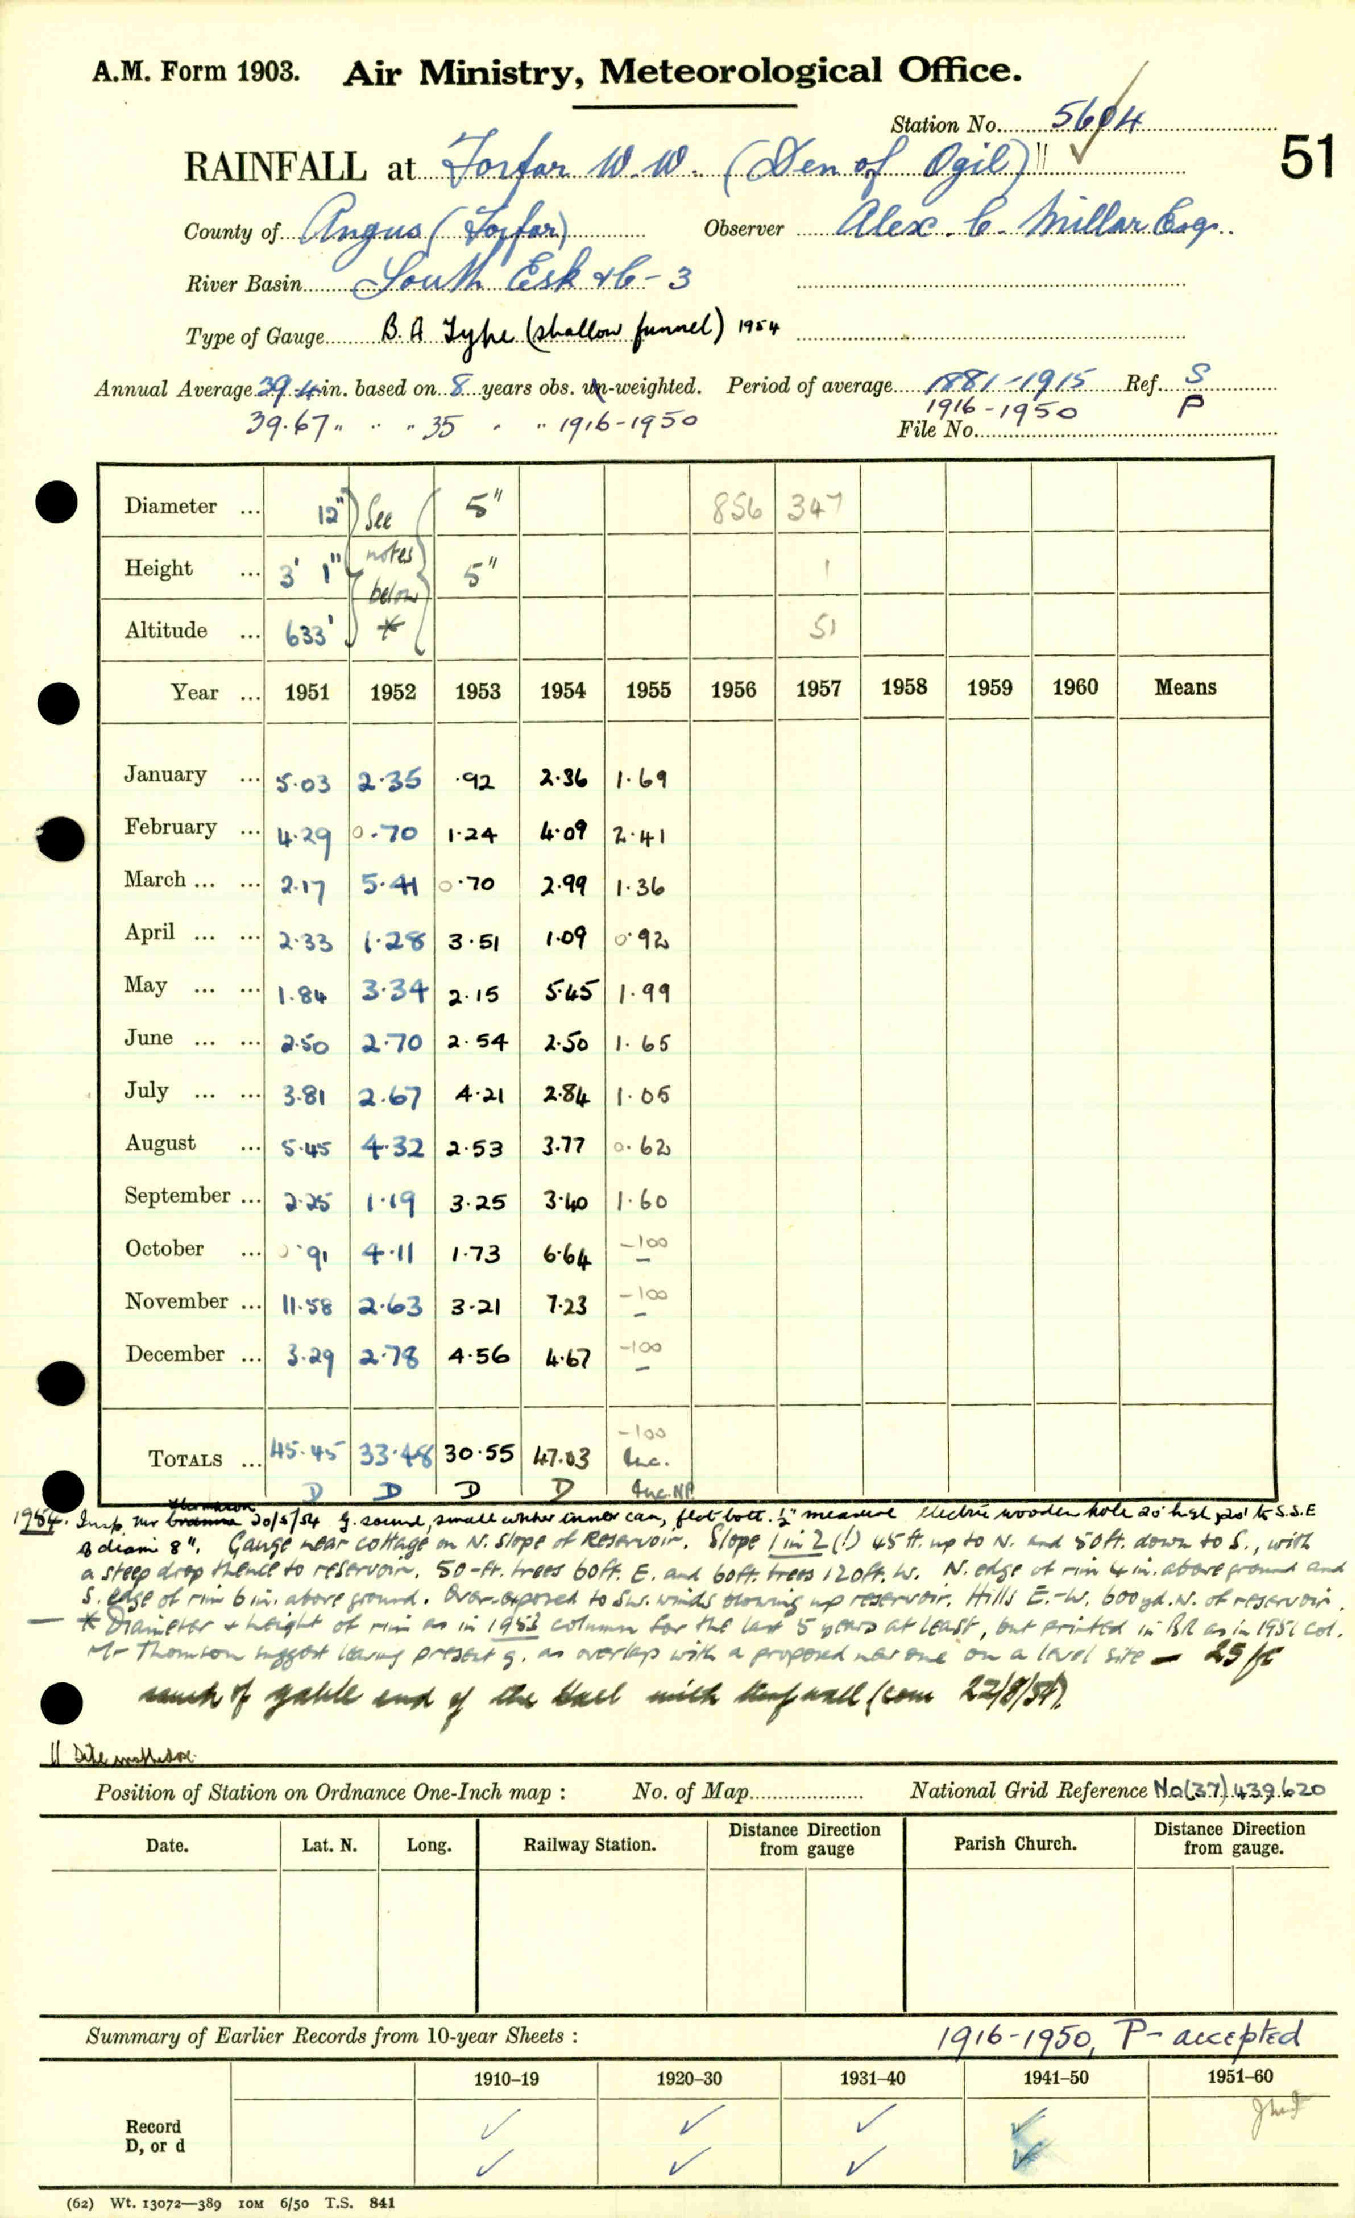 A.M. Form 1903. Air Ministry, Meteorological Office.
Station No. 5604
51
RAINFALL at Forfar W.W. (Den of Ogil) ||
County of Angus (Forfar) Observer Alex. C. Millar Esq.
River Basin South Esk &c - 3
Type of Gauge B.A Type (shallow funnel) 1954
Annual Average 39.4 in. based on 8 years obs. un-weighted. Period of average 1881-1915 Ref. S
39.67 " " " 35 " " 1916-1950 1916-1950 P
File No.
Diameter ... 12" See 5" 856 347
Height ... 3' 1" notes below 5" 1
Altitude ... 633' * 51
Year ... 1951 1952 1953 1954 1955 1956 1957 1958 1959 1960 Means
January ... 5.03 2.35 .92 2.36 1.69
February ... 4.29 0.70 1.24 4.09 2.41
March ... ... 2.17 5.41 0.70 2.99 1.36
April ... ... 2.33 1.28 3.51 1.09 0.92
May ... ... 1.84 3.34 2.15 5.45 1.99
June ... ... 2.50 2.70 2.54 2.50 1.65
July ... ... 3.81 2.67 4.21 2.84 1.05
August ... 5.45 4.32 2.53 3.77 0.62
September ... 2.25 1.19 3.25 3.40 1.60
October ... 0.91 4.11 1.73 6.64 -100 -
November ... 11.58 2.63 3.21 7.23 -100 -
December ... 3.29 2.78 4.56 4.67 -100 -
TOTALS ... 45.45 33.48 30.55 47.03 -100 Inc.
D D D D Inc. NP
1954. Insp. Mr Thomson 20/5/54 g. sound, small inner can, flat bott. ½" measure electric wooden pole 20' high 20' to S.S.E
of diam 8". Gauge near cottage on N. slope of Reservoir. Slope 1 in 2 (!) 45 ft. up to N. and 50 ft. down to S., with
a steep drop thence to reservoir. 50-ft. trees 60ft. E. and 60ft. trees 120ft. W. N. edge of rim 4 in. above ground and
S. edge of rim 6 in. above ground. Over-exposed to SW. winds blowing up reservoir. Hills E.-W. 600 yd. N. of reservoir.
* Diameter & height of rim as in 1953 column for the last 5 years at least, but printed in BR as in 1951 col.
Mr Thomson suggest leaving present g. as overlap with a proposed new one on a level site — 25 ft
south of gable end of the
22/8/54).
|| Site
Position of Station on Ordnance One-Inch map : No. of Map National Grid Reference No(37) 439620
Date. Lat. N. Long. Railway Station. Distance Direction from gauge Parish Church. Distance Direction from gauge.
Summary of Earlier Records from 10-year Sheets : 1916-1950, P- accepted
1910–19 1920–30 1931–40 1941–50 1951–60
Record ✓ ✓ ✓ ✓
D, or d ✓ ✓ ✓ ✓
(62) Wt. 13072—389 10M 6/50 T.S. 841